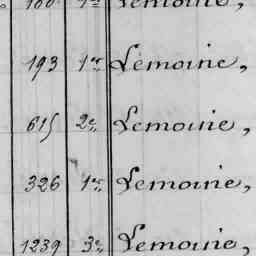 100 1er Lemoine,
193 1er Lemoine,
615 2e Lemoine,
326 1er Lemoine,
1239 3e Lemoine,